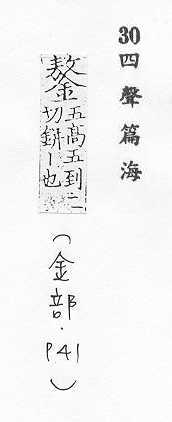 30 四聲篇海
鏊 五高五到二
切鉼丨也
（金部．P41）